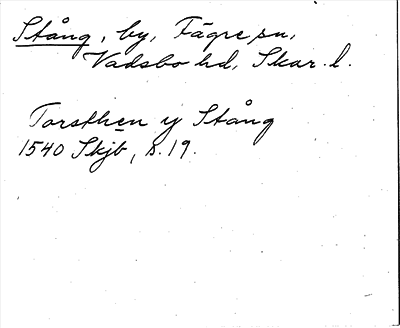 Stång, by, Fägre sn,
Vadsbo hd, Skar. l.
Torsthen y Stång
1540 Skjb, s. 19.